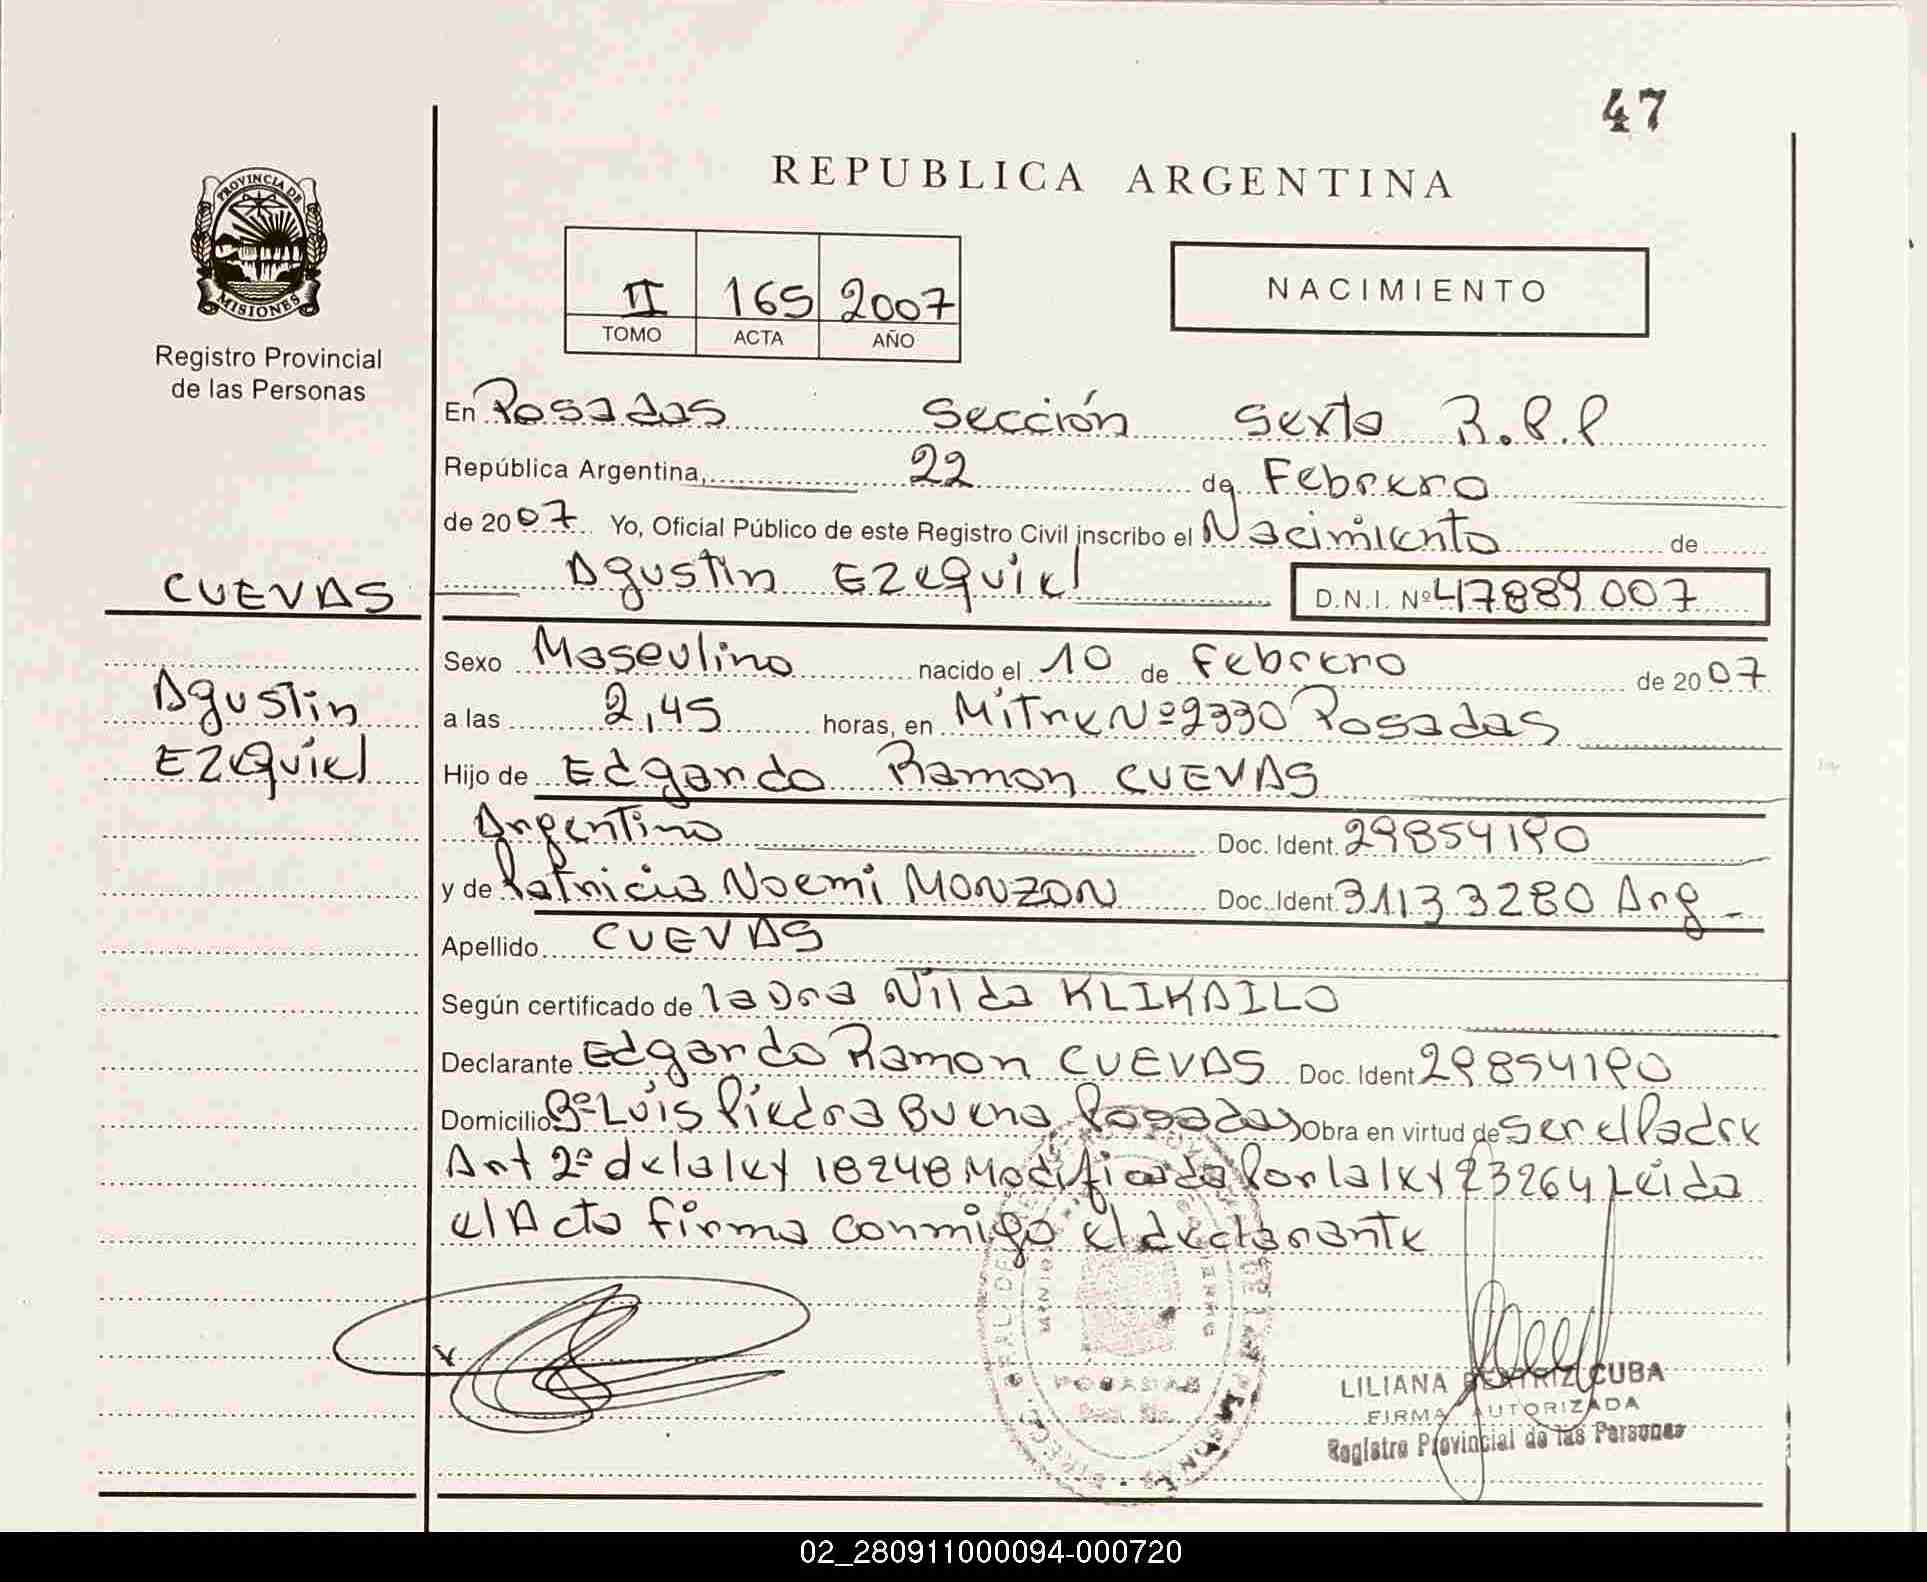 47
REPUBLICA ARGENTINA
PROVINCIA DE
MISIONES
Registro Provincial
de las Personas
II 165 2007
TOMO ACTA AÑO
NACIMIENTO
En Posadas Sección Sexta R.P.P
República Argentina, 22 de Febrero
de 2007 Yo, Oficial Público de este Registro Civil inscribo el Nacimiento de
CUEVAS
Agustin Ezequiel D.N.I. Nº 47889007
Agustin
Ezequiel
Sexo Masculino nacido el 10 de Febrero de 2007
a las 2,45 horas, en Mitre Nº 2330 Posadas
Hijo de Edgardo Ramon CUEVAS
Argentino Doc. Ident. 29854190
y de Patricia Noemi MONZON Doc. Ident. 31133280 Arg
Apellido CUEVAS
Según certificado de la Dra Nilda KLIKAILO
Declarante Edgardo Ramon CUEVAS Doc. Ident 29854190
Domicilio Bº Luis Piedra Buena Posadas Obra en virtud de ser el Padre
Art 2º de la ley 18248 Modificada Por la ley 23264 Leida
el Acta firma conmigo el declarante
POSADAS
LILIANA BEATRIZ CUBA
FIRMA AUTORIZADA
Registro Provincial de las Personas
02_280911000094-000720